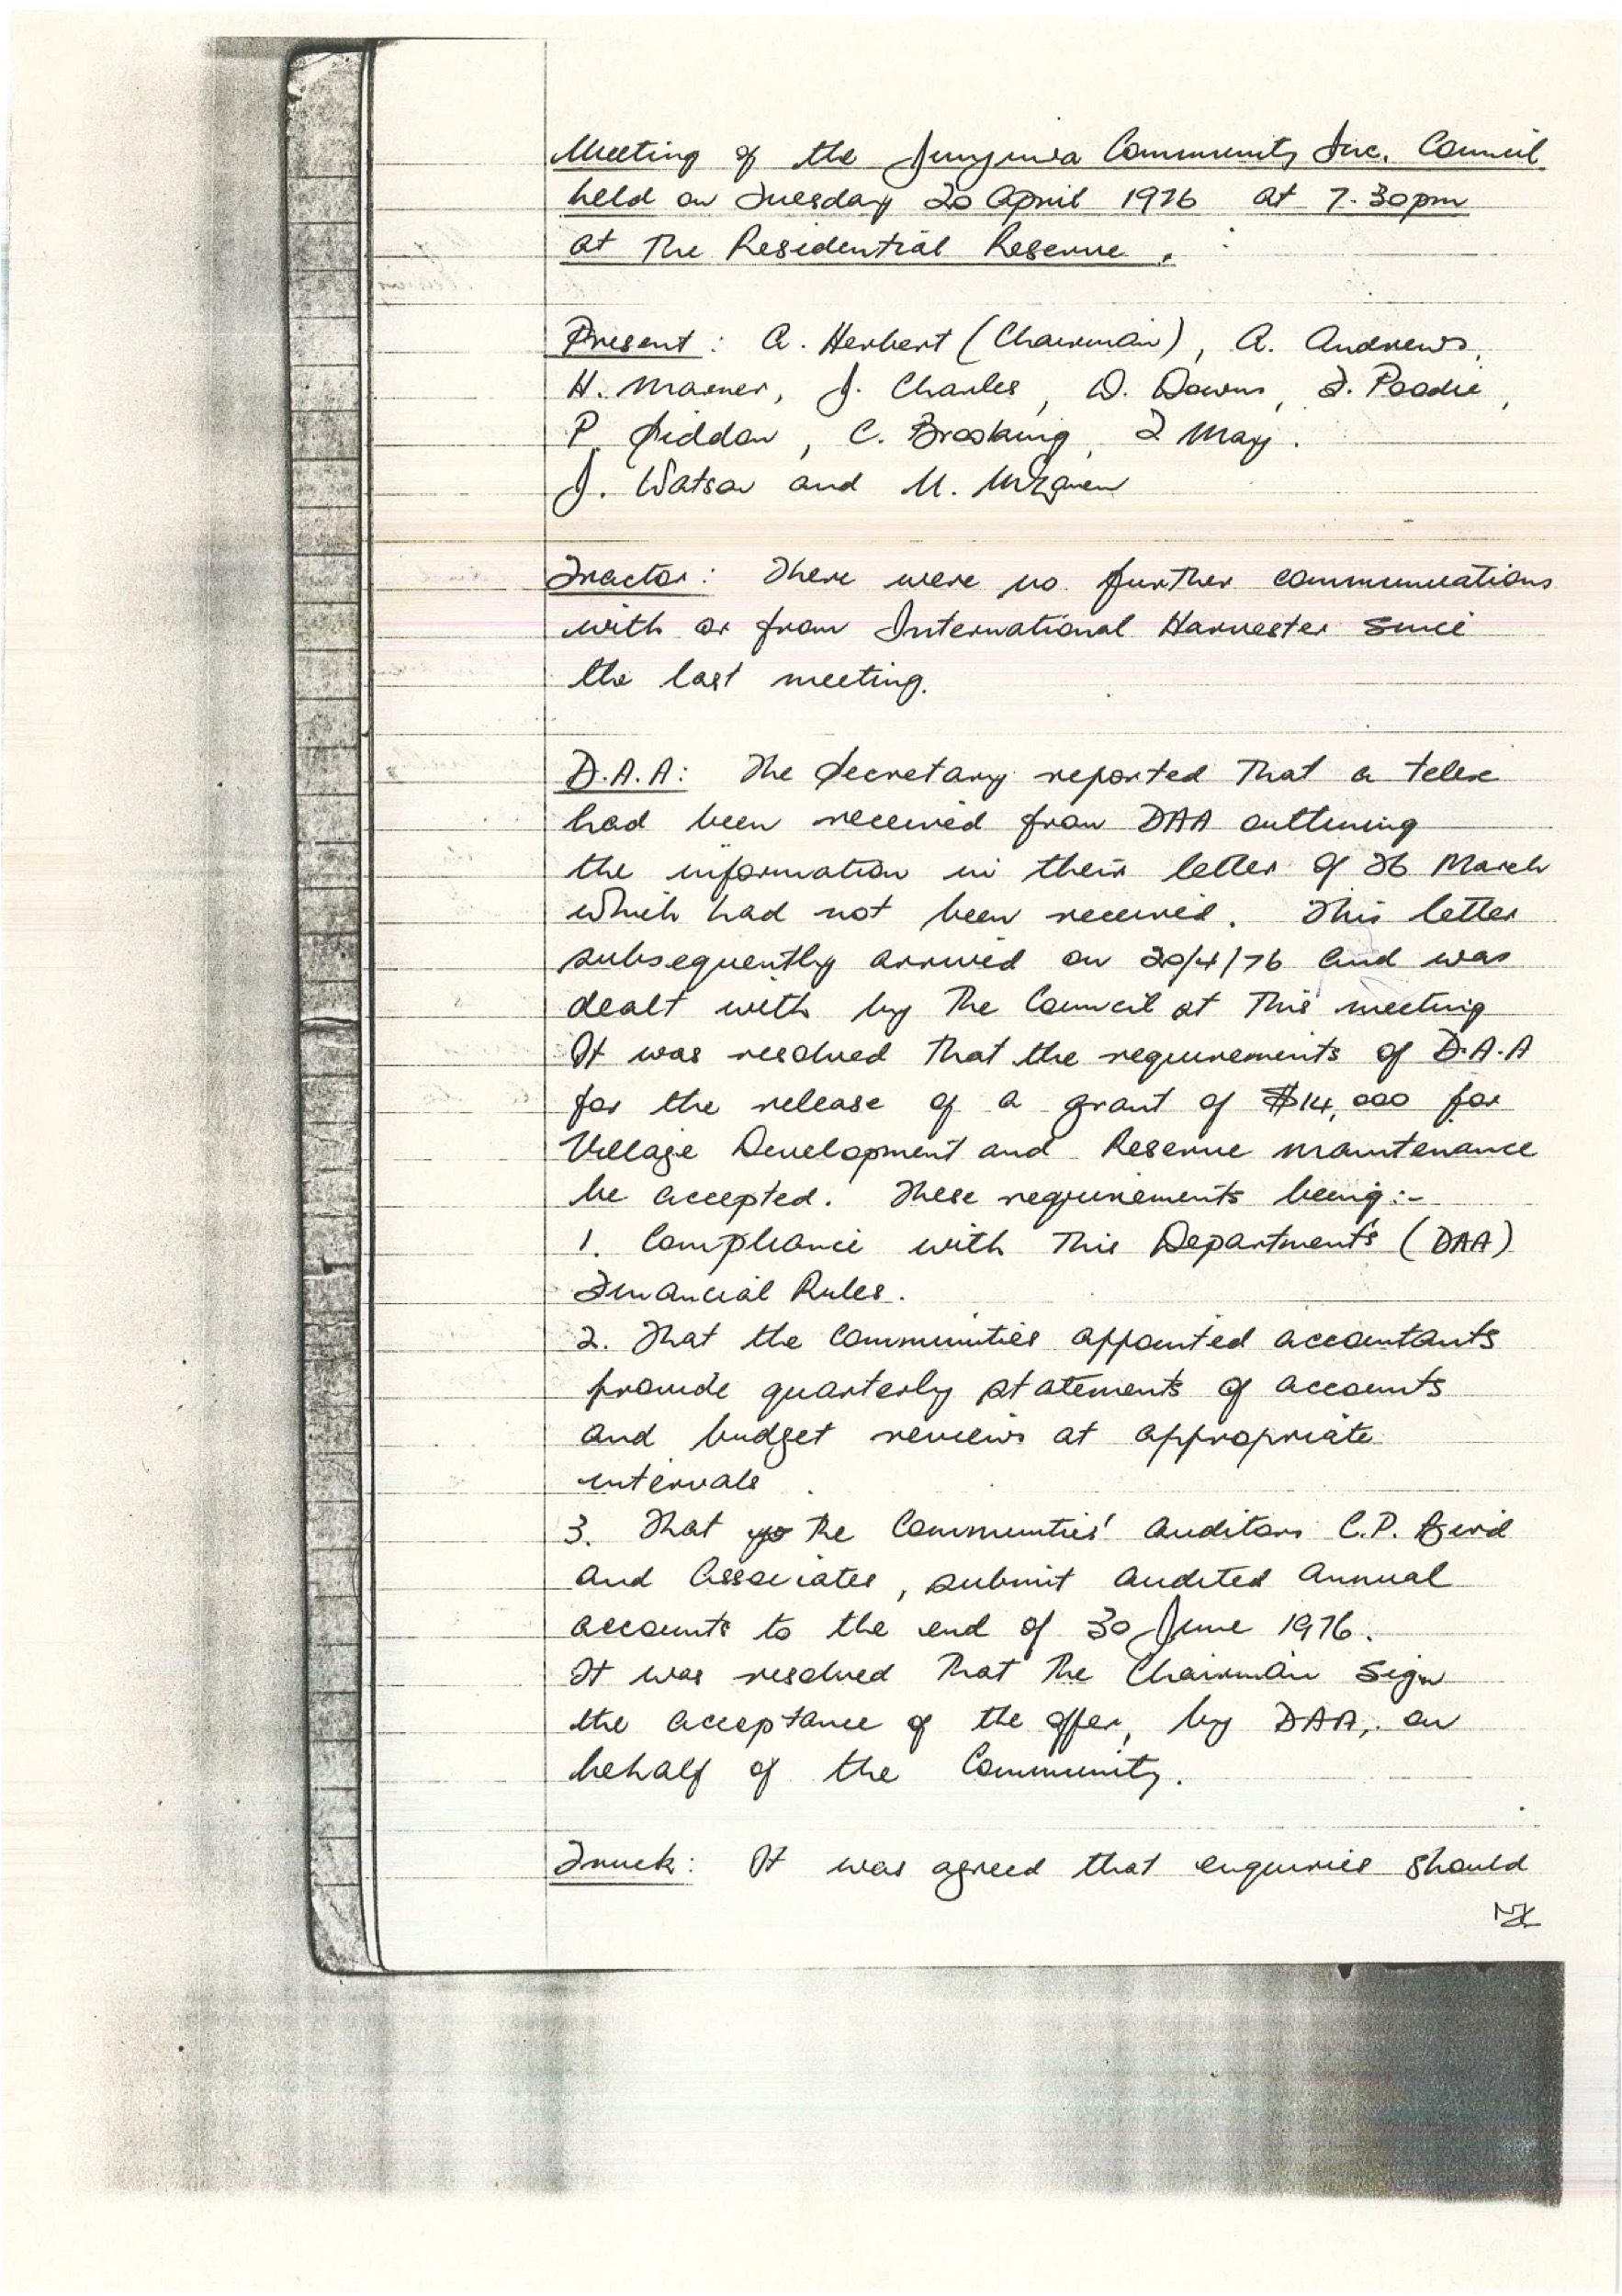 Meeting of the Junjuwa Community Inc. Council
held on Tuesday 20 April 1976 at 7.30pm
at The Residential Reserve.
Present: A. Herbert (Chairman), A. Andrews,
H. J. Charles, D. Downs,
P. Siddon, C. Brooking, May.
J. Watson and M.
Tractor: There were no further communications
with or from International Harvester since
the last meeting.
D.A.A: The Secretary reported That a telex
had been received from DAA outlining
the information in their letter of 26 March
which had not been received. This letter
subsequently arrived on 20/4/76 and was
dealt with by The Council at This meeting
It was resolved That the requirements of D.A.A
for the release of a grant of $14,000 for
Village Development and Reserve maintenance
be accepted. These requirements being:-
1. Compliance with This Department's (DAA)
Financial Rules.
2. That the Communities appointed accountants
provide quarterly statements of accounts
and budget reviews at appropriate
intervals
3. That The Communties' Auditors C.P. Bird
and Associates, submit audited annual
accounts to the end of 30 June 1976.
It was resolved That The Chairman Sign
the acceptance of the offer, by DAA, on
behalf of the Community.
Truck: It was agreed that enquiries should